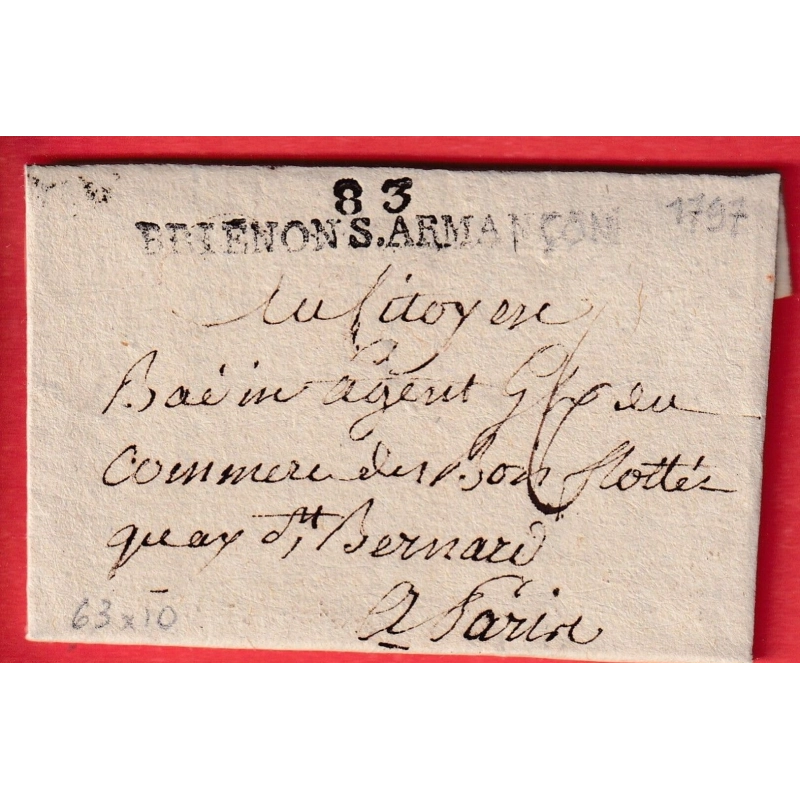 83
BRIENON S. ARMANÇON
1797
Au Citoyen
agent Gal du
Commerce des Bois flottés
quay St Bernard
A Paris
63 x 10